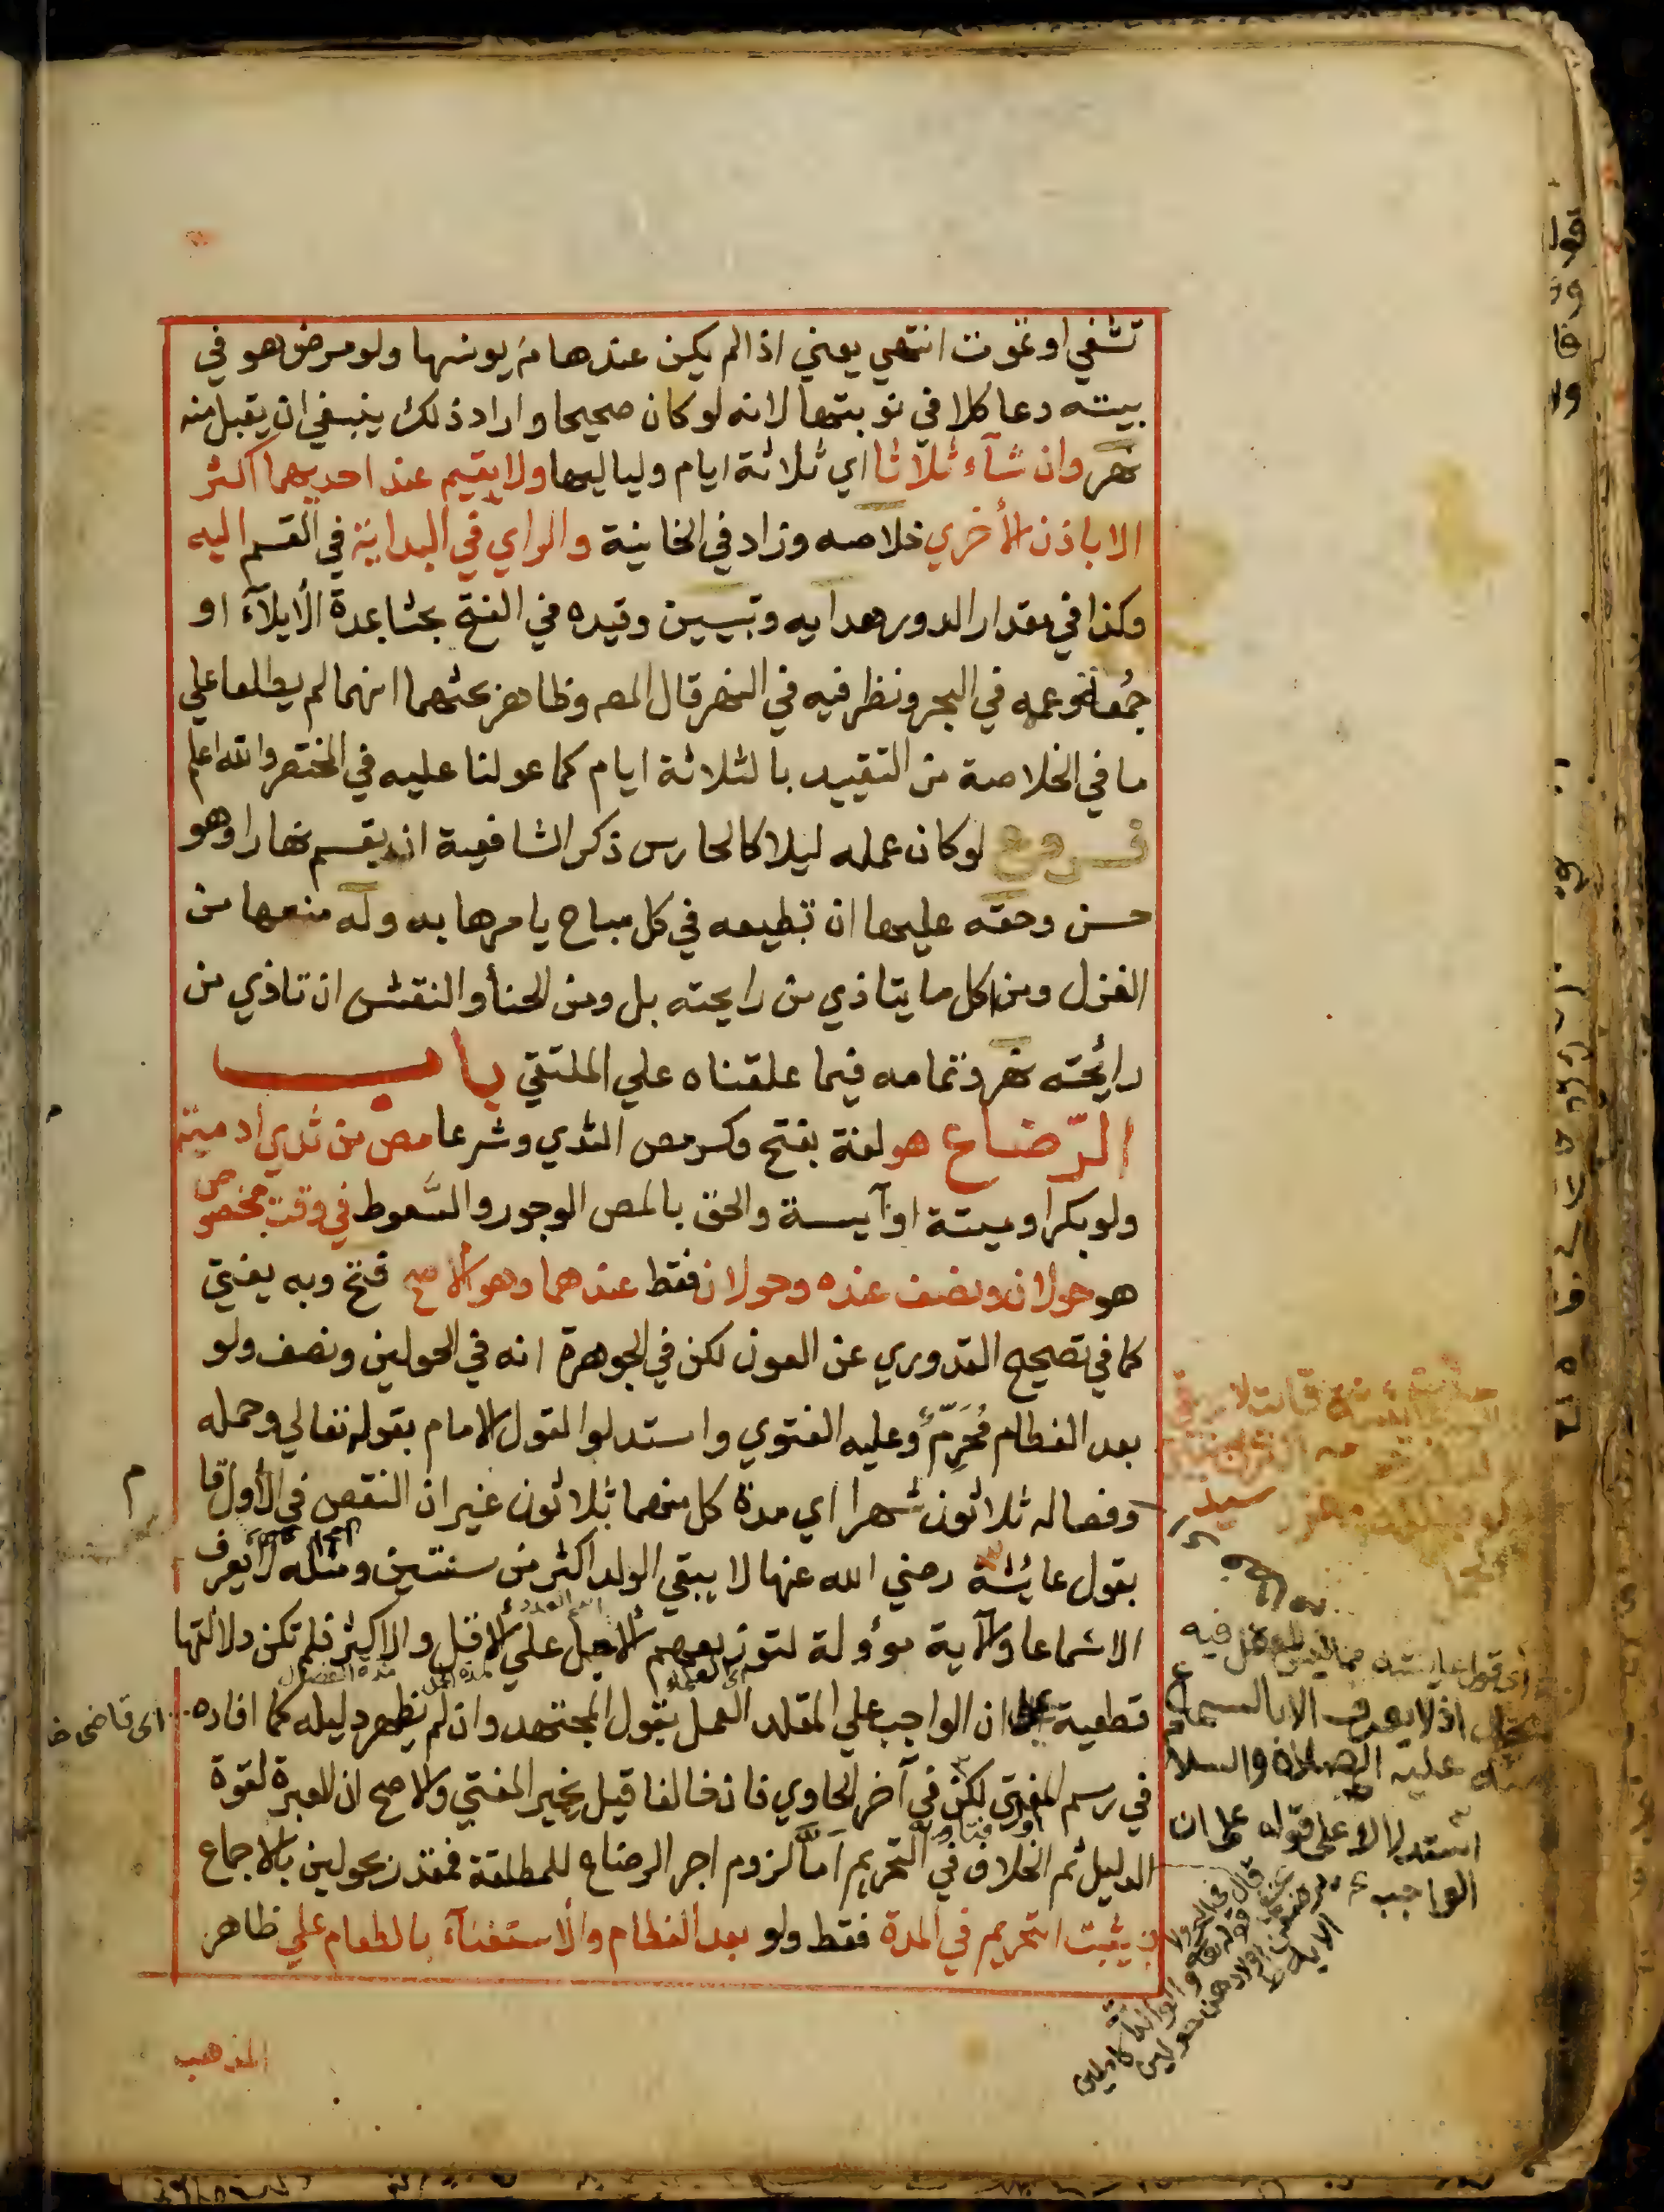 تشفي او تموت انتهي يعني اذا لم يكن عندها من يونسها ولو مرض هو في
بيته دعا كلا في نوبتها لانه لو كان صحيحا واراد ذلك ينبغي ان يقبل منه
نهر وان شآء ثلاثا اي ثلاثة ايام ولياليها ولا يقيم عند احديهما اكثر
الا باذن الأخري خلاصه وزاد في الخانية والراي في البداية في القسم اليه
وكذا في مقدار الدور هدايه وتبيين وقيده في الفتح بحثا بمدة الأيلآء او
جمعة وعممه في البحر ونظر فيه في النهر قال المص وظاهر بحثهما انهما لم يطلعا علي
ما في الخلاصة من التقييد بالثلاثة ايام كما عولنا عليه في المختصر والله اعلم
فروع لو كان عمله ليلا كالحارس ذكر الشافعية انه يقسم نهارا وهو
حسن وحقه عليها ان تطيعه في كل مباح يامرها به وله منعها من
الغزل ومن اكل ما يتاذي من رايحته بل ومن الحنأ والنقش ان تاذي من
رائحته نهر وتمامه فيما علقناه علي الملتقي باب
الرّضاع هو لغة بفتح وكسر مص الثدي وشرعا مص من ثدي ادمية
ولو بكرا وميتة او آيسة والحق بالمص الوجور والسَّعوط في وقت مخصوص
هو حولان ونصف عنده وحولان فقط عندهما وهو الاصح فتح وبه يفتي
كما في تصحيح القدوري عن العون لكن في الجوهرة انه في الحولين ونصف ولو
بعد الفطام مُحَرِّمٌ وعليه الفتوي واستدلوا لقول الامام بقوله تعالي وحمله
وفصاله ثلاثون شهرا اي مدة كل منهما ثلاثون غير ان النقص في الأول قا
بقول عايئشة رضي الله عنها لا يبقي الولد اكثر من سنتين ومثله لا يعرف
الا سماعا والآية مؤولة لتوزيعهم الاجل علي الاقل والاكثر فلم تكن دلالتها
قطعية علي ان الواجب علي المقلد العمل بقول المجتهد وان لم يظهر دليله كما افاده
في رسم المفتي لكن في آخر الحاوي فان خالفا قيل يخير المفتي والاصح ان العبرة لقوة
الدليل ثم الخلاف في التحريم امّا لزوم اجر الرضاع للمطلقة فمقدر بحولين بالاجماع
ويثبت التحريم في المدة فقط ولو بعد الفطام والأستغنآء بالطعام علي ظاهر
المذهب
اي قاضي خا
م
سيد
اي قول عايشة مما ليس للعقل فيه
مجال اذ لا يعرف الا بالسماع
منه عليه الصلاة والسلام
استدلالا على قوله على ان
الواجب
قوله تعالى والوالدات
يرضعن اولادهن حولين
كاملين
الاية